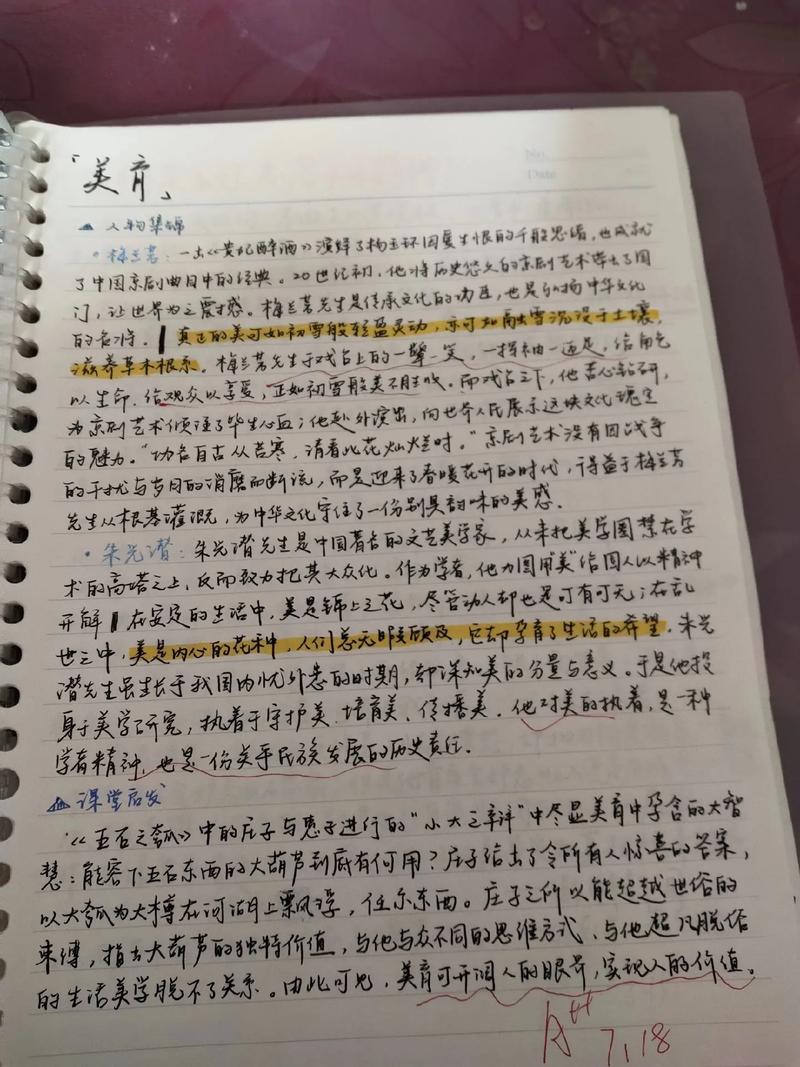 「美育」
No.
Date
人物集锦
·梅兰芳：一出《贵妃醉酒》演绎了杨玉环因爱生恨的千般思绪，也成就
了中国京剧曲目中的经典。20世纪初，他将历史悠久的京剧艺术带出了国
门，让世界为之震撼。梅兰芳先生是传承文化的功臣，也是弘扬中华文化
的名将。真正的美可如初雪般轻盈灵动，亦可如融雪沉浸于土壤，
滋养草木根系。梅兰芳先生于戏台上的一颦一笑，一挥袖一迈足，给角色
以生命，给观众以享受，正如初雪般美不胜收。而戏台之下，他苦心钻研，
为京剧艺术倾注了毕生心血；他赴外演出，向世界人民展示这块文化瑰宝
的魅力。“功名自古从苦寒，请看此花灿烂时。”京剧艺术没有因战争
的干扰与岁月的消磨而断流，而是迎来了春暖花开的时代，得益于梅兰芳
先生从根基灌溉，为中华文化守住了一份别具韵味的美感。
·朱光潜：朱光潜先生是中国著名的文艺美学家，从未把美学囿禁在学
术的高塔之上，反而致力把其大众化。作为学者，他力图用“美”给国人以精神
开解 在安定的生活中，美是锦上之花，尽管动人却也是可有可无；在乱
世之中，美是内心的花种，人们总无暇顾及，它却孕育了生活的希望。朱光
潜先生虽生长于我国内忧外患的时期，却深知美的分量与意义。于是他投
身于美学研究，执着于守护美、培育美、传播美。他对美的执着，是一种
学者精神，也是一份关乎民族发展的历史责任。
课堂启发
《五石之瓠》中的庄子与惠子进行的“小大之辩”中尽显美育中孕含的大智
慧：能容下五石东西的大葫芦到底有何用？庄子给出了令所有人惊喜的答案，
以大瓠为大樽在河湖上飘浮，任尔东西。庄子之所以能超越世俗的
束缚，指出大葫芦的独特价值，与他与众不同的思维方式、与他超凡脱俗
的生活美学脱不了关系。由此可见，美育可开阔人的眼界，实现人的价值。
A++
7.18